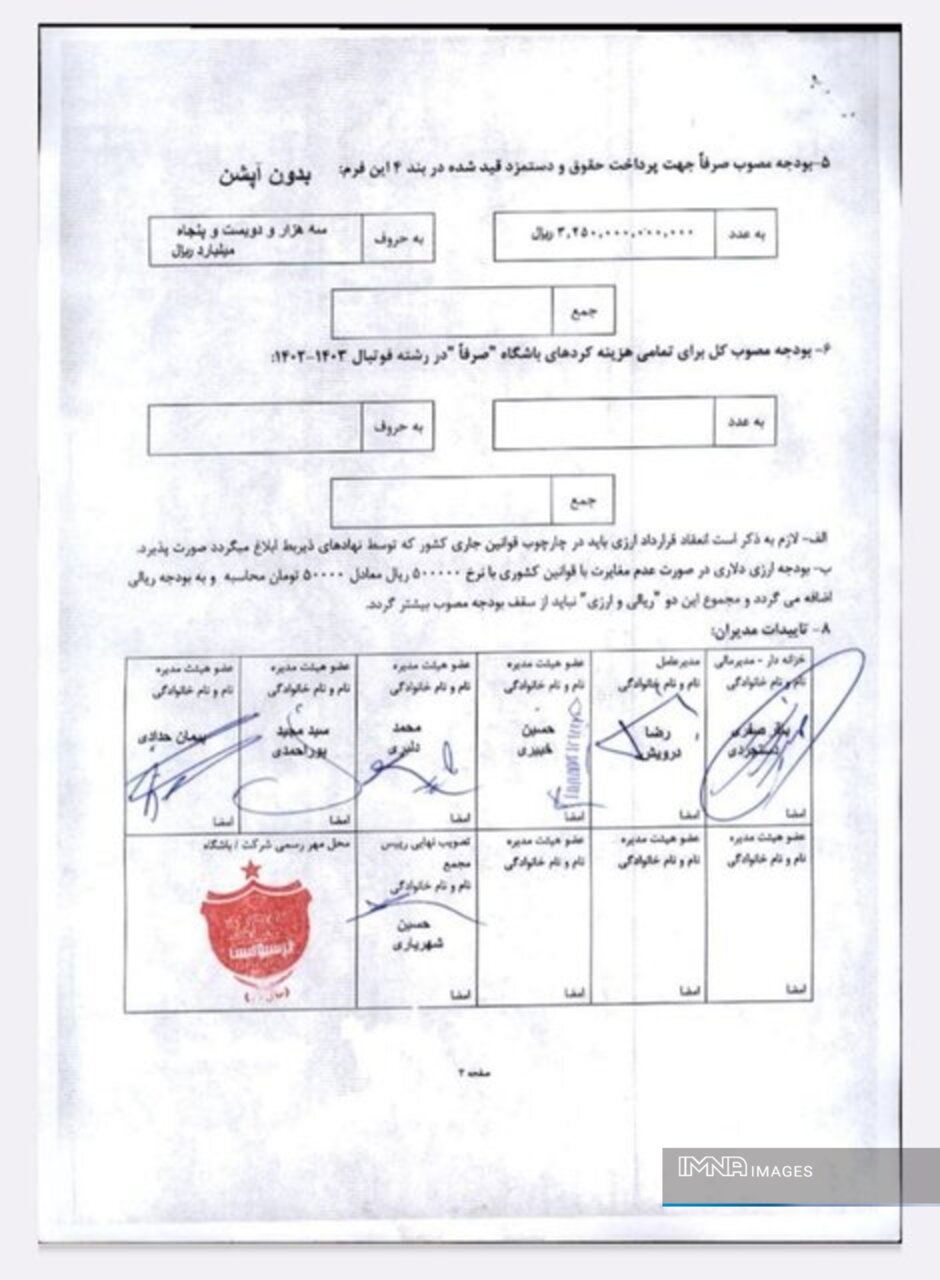 ۵-بودجه مصوب صرفاً جهت پرداخت حقوق و دستمزد قید شده در بند ۴ این فرم: بدون آپشن
به عدد
۳,۲۵۰,۰۰۰,۰۰۰,۰۰۰ ریال
به حروف
سه هزار و دویست و پنجاه
میلیارد ریال
جمع
۶- بودجه مصوب کل برای تمامی هزینه کردهای باشگاه "صرفاً "در رشته فوتبال ۱۴۰۳-۱۴۰۲:
به عدد
به حروف
جمع
الف- لازم به ذکر است انعقاد قرارداد ارزی باید در چارچوب قوانین جاری کشور که توسط نهادهای ذیربط ابلاغ میگردد صورت پذیرد.
ب- بودجه ارزی دلاری در صورت عدم مغایرت با قوانین کشوری با نرخ ۵۰۰۰۰۰ ریال معادل ۵۰۰۰۰ تومان محاسبه و به بودجه ریالی
اضافه می گردد و مجموع این دو "ریالی و ارزی" نباید از سقف بودجه مصوب بیشتر گردد.
۸- تاییدات مدیران:
خزانه دار - مدیرمالی
نام و نام خانوادگی
صفری
دستجردی
امضا
مدیرعامل
نام و نام خانوادگی
رضا
درویش
امضا
عضو هیئت مدیره
نام و نام خانوادگی
حسین
خبیری
امضا
عضو هیئت مدیره
نام و نام خانوادگی
محمد
دلیری
امضا
عضو هیئت مدیره
نام و نام خانوادگی
سید مجید
پوراحمدی
امضا
عضو هیئت مدیره
نام و نام خانوادگی
پیمان حدادی
امضا
عضو هیئت مدیره
نام و نام خانوادگی
امضا
عضو هیئت مدیره
نام و نام خانوادگی
امضا
عضو هیئت مدیره
نام و نام خانوادگی
امضا
تصویب نهایی رییس
مجمع
نام و نام خانوادگی
حسین
شهریاری
امضا
محل مهر رسمی شرکت / باشگاه
پرسپولیس
صفحه ۲
IMNA IMAGES